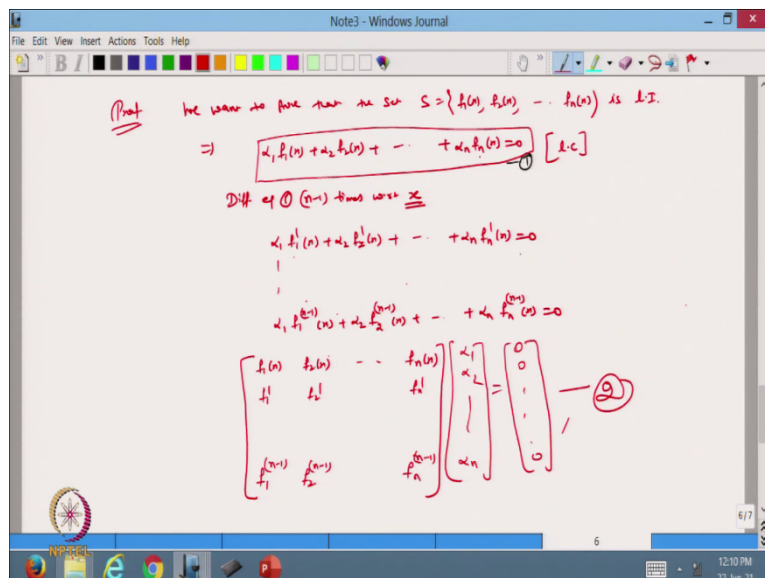 Note3 - Windows Journal
File Edit View Insert Actions Tools Help
B I
Proof We want to prove that the set S = {f₁(x), f₂(x), -- fₙ(x)} is L.I.
⇒ α₁f₁(x) + α₂f₂(x) + -- + αₙfₙ(x) = 0 —① [l.c]
Diff eq ① (n-1) times w.r.t x
α₁f₁'(x) + α₂f₂'(x) + -- + αₙfₙ'(x) = 0
α₁f₁⁽ⁿ⁻¹⁾(x) + α₂f₂⁽ⁿ⁻¹⁾(x) + -- + αₙfₙ⁽ⁿ⁻¹⁾(x) = 0
f₁(x) f₂(x) -- fₙ(x) α₁ 0
f₁' f₂' fₙ' α₂ = 0 — ②
f₁⁽ⁿ⁻¹⁾ f₂⁽ⁿ⁻¹⁾ fₙ⁽ⁿ⁻¹⁾ αₙ 0
6/7
6
NPTEL
12:10 PM